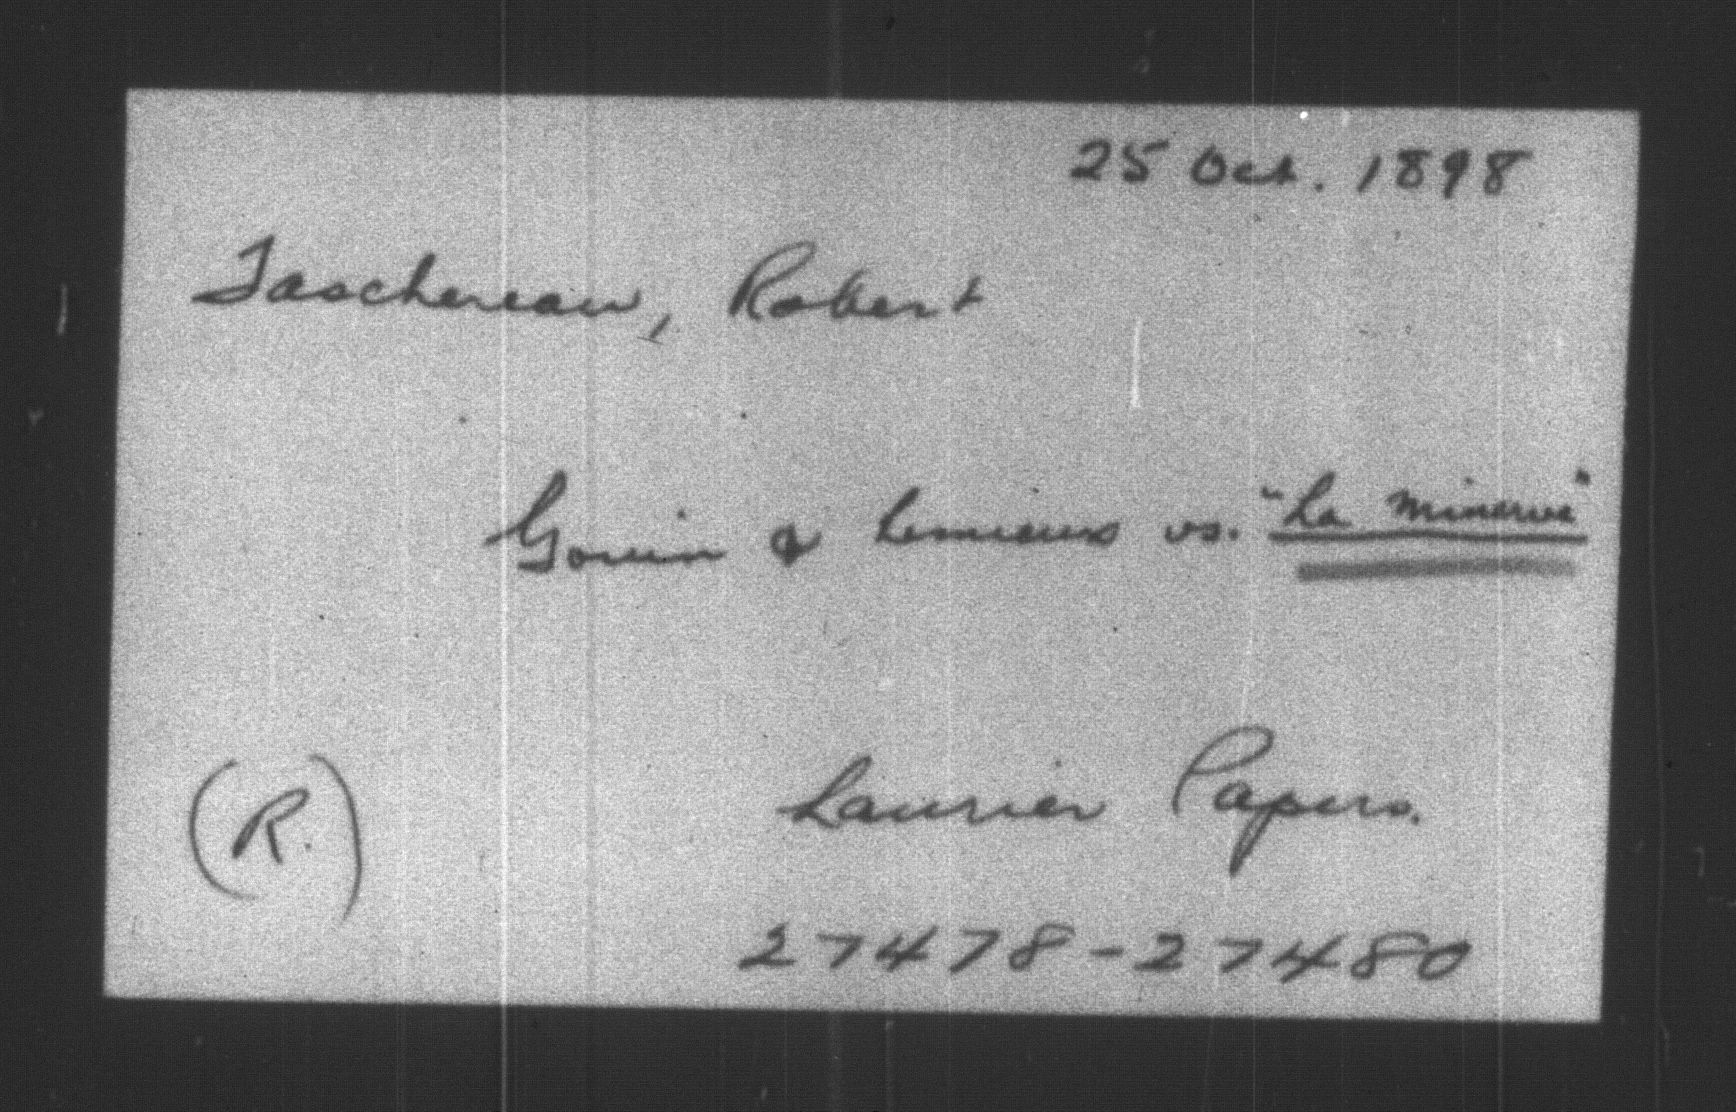 25 Oct. 1898
Taschereau, Robert
Gouin & Lemieux vs. "La Minerve"
(R.)
Laurier Papers.
27478-27480